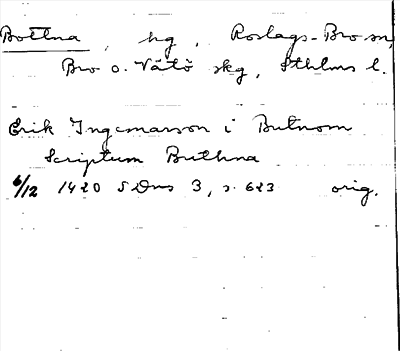 Bottna, hg, Roslags-Bro sn,
Bro o. Vätö skg, Sthlms l.
Erik Ingemarson i Butnom
Scriptum Buthna
6/12 1420 SDns 3, s. 623 orig.